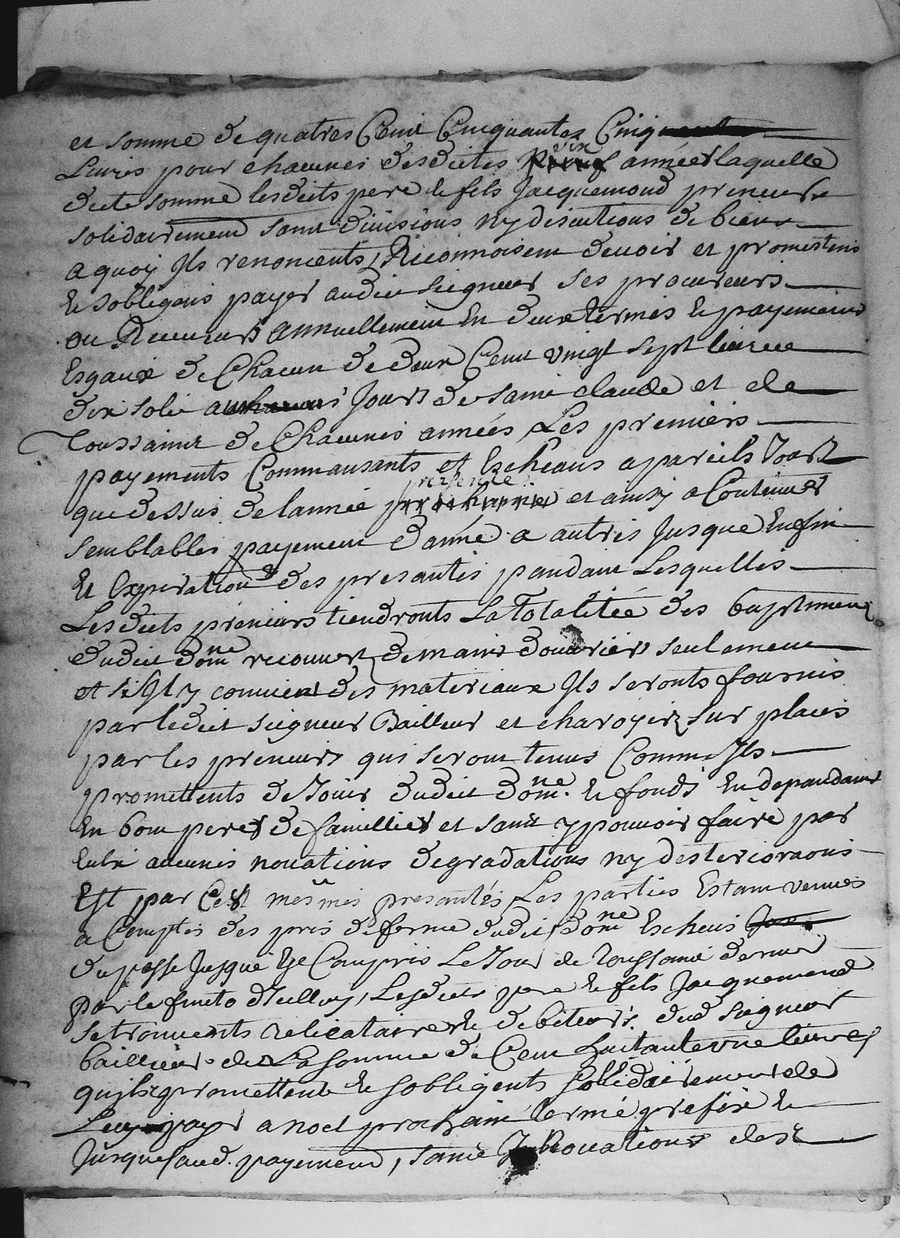 et somme de quatres Cent Cinquantes Cinq
Livres pour chacunes desdictes six années laquelle
dicte somme lesdicts pere et fils Jacquemond preneurs
solidairement sans divisions ny discutions de biens
a quoy Ils renoncents, Reconnoissent devoir et promettens
et sobligens payer audict seigneur ses procureurs
ou Receveurs annuellement En deux termes et payements
Esgaux de Chacun de deux Cent vingt sept livres
dix sols Jours de saint claude et de
Toussaint de Chacunes années Les premiers
payements Commansants et Escheans a pareils Jours
que dessus de lannée presente et ainsy a Continuer
semblables payement danné a autres Jusque Enfin
et Expiration des presantes pandant Lesquelles
Lesdicts preneurs tiendronts La Totalitée des baptiments
dudict dome recouvert de mains douvriers seulement
et sy Il y convient des materiaux Ils seronts fournis
par ledict seigneur Bailleur et charoyez sur places
par les preneurs qui seront tenus Comme Ils
promettents de Jouir dudict dome. et fonds En depandant
En bons peres de familliers et sans y pouvoir faire par
aucunes novations degradations ny desterioraons
Est par Ces mesmes presantes Les parties Estant venues
a Comptes des pris de ferme dudict dome Escheus
du passé Jusque et Compris Le Jour de Toussaint dernier
par le finito dicelluy, Lesdicts pere et fils Jacquemond
se trouvents relicataire et debiteurs dud seigneur
bailleur de La somme de Cent huitante une livres
quils promettent et sobligents solidairement de
Luy payer a noel prochain terme prefix et
Jusque aud. payement, sans Inovations des